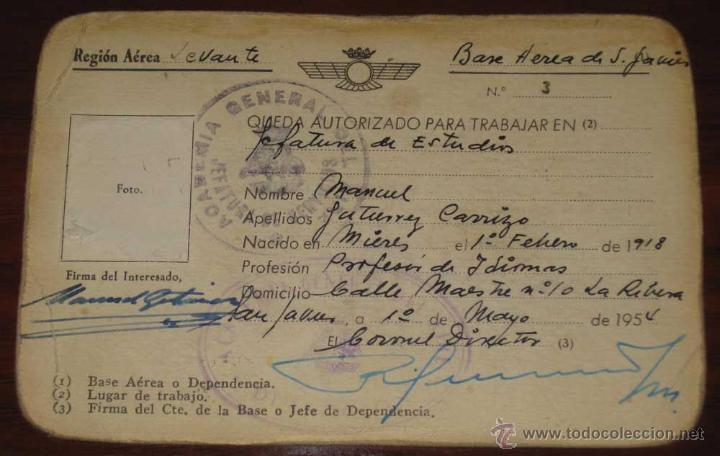 Región Aérea Levante
Base Aerea de S. Javier
N.º 3
QUEDA AUTORIZADO PARA TRABAJAR EN (2)
Jefatura de Estudios
Nombre Manuel
Apellidos Gutierrez Carrizo
Nacido en Mieres el 1º Febrero de 1918
Profesión Profesor de Idiomas
Domicilio Calle Maestre nº 10 La Ribera
San Javier, a 1º de Mayo de 1954
El Coronel Director (3)
Foto.
Firma del Interesado,
ACADEMIA GENERAL DEL
JEFATURA
(1) Base Aérea o Dependencia.
(2) Lugar de trabajo.
(3) Firma del Cte. de la Base o Jefe de Dependencia.
© www.todocoleccion.net